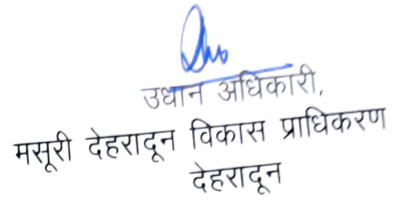 उधान अधिकारी,
मसूरी देहरादून विकास प्राधिकरण
देहरादून